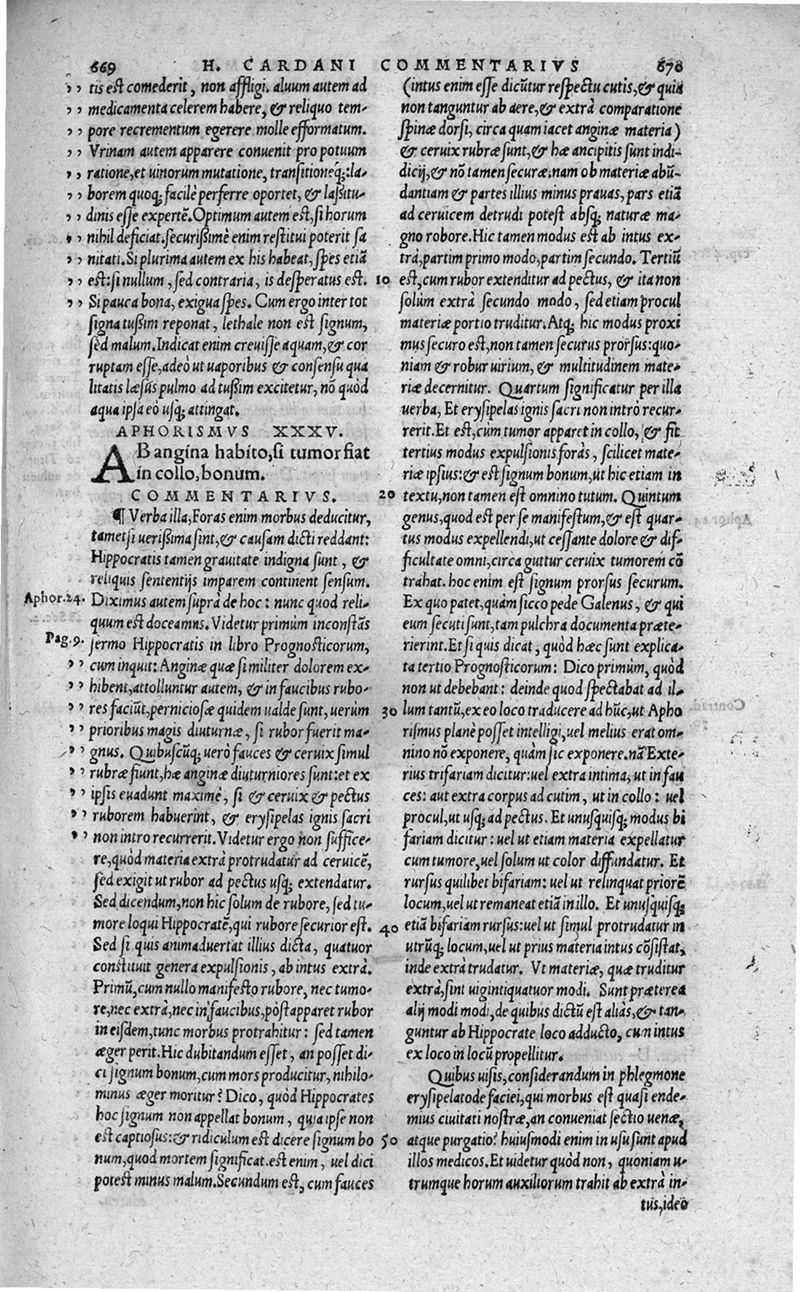 669 H. CARDANI COMMENTARIVS 670
tis est comederit, non affligi. aluum autem ad
medicamenta celerem habere, & reliquo tem-
pore recrementum egerere molle efformatum.
Vrinam autem apparere conuenit pro potuum
ratione, et uinorum mutatione, transitioneq́;: la-
borem quoq; facile perferre oportet, & lassitu-
dinis esse expertẽ. Optimum autem est, si horum
nihil deficiat. securissimè enim restitui poterit sa
nitati. Si plurima autem ex his habeat, spes etiã
est: si nullum, sed contraria, is desperatus est.
Si pauca bona, exigua spes. Cum ergo inter tot
signa tussim reponat, lethale non est signum,
sed malum. Indicat enim creuisse aquam, & cor
ruptam esse, adeò ut uaporibus & consensu qua
litatis læsus pulmo ad tussim excitetur, nõ quòd
aqua ipsa eò usq; attingat.
APHORISMVS XXXV.
AB angina habito, si tumor fiat
in collo, bonum.
COMMENTARIVS.
¶ Verba illa, Foras enim morbus deducitur,
tametsi uerissima sint, & causam dicti reddant:
Hippocratis tamen grauitate indigna sunt, &
reliquis sententijs imparem continent sensum.
Aphor. 24. Diximus autem suprà de hoc: nunc quod reli-
quum est doceamus. Videtur primùm inconstãs
Pag. 9. sermo Hippocratis in libro Prognosticorum,
cum inquit: Anginæ quæ similiter dolorem ex-
hibent, attolluntur autem, & in faucibus rubo-
res faciũt, perniciosæ quidem ualde sunt, uerùm
prioribus magis diuturnæ, si rubor fuerit ma-
gnus. Quibuscũq; uerò fauces & ceruix simul
rubræ fiunt, hæ anginæ diuturniores sunt: et ex
ipsis euadunt maximè, si & ceruix & pectus
ruborem habuerint, & erysipelas ignis sacri
non intro recurrerit. Videtur ergo non suffice-
re, quòd materia extrà protrudatur ad ceruicẽ,
sed exigit ut rubor ad pectus usq; extendatur.
Sed dicendum, non hic solum de rubore, sed tu-
more loqui Hippocratẽ, qui rubore securior est.
Sed si quis animaduertat illius dicta, quatuor
constituit genera expulsionis, ab intus extrà.
Primũ, cum nullo manifesto rubore, nec tumo-
re, nec extrà, nec in faucibus, pòst apparet rubor
in eisdem, tunc morbus protrahitur: sed tamen
æger perit. Hic dubitandum esset, an posset di-
ci signum bonum, cum mors producitur, nihilo-
minus æger moritur? Dico, quòd Hippocrates
hoc signum non appellat bonum, quia ipse non
est captiosus: & ridiculum est dicere signum bo
num, quod mortem significat. est enim, uel dici
potest minus malum. Secundum est, cum fauces
(intus enim esse dicũtur respectu cutis, & quia
non tanguntur ab aere, & extrà comparatione
spinæ dorsi, circa quam iacet anginæ materia)
& ceruix rubræ sunt, & hæ ancipitis sunt indi-
dicij, & nõ tamen securæ, nam ob materiæ abũ-
dantiam & partes illius minus prauas, pars etiã
ad ceruicem detrudi potest absq; naturæ ma-
gno robore. Hic tamen modus est ab intus ex-
trà, partim primo modo, partim secundo. Tertiũ
10 est, cum rubor extenditur ad pectus, & ita non
solùm extrà secundo modo, sed etiam procul
materiæ portio truditur. Atq; hic modus proxi
mus securo est, non tamen securus prorsus: quo-
niam & robur uirium, & multitudinem mate-
riæ decernitur. Quartum significatur per illa
uerba, Et erysipelas ignis sacri non intrò recur-
rerit. Et est, cùm tumor apparet in collo, & fit
tertius modus expulsionis foràs, scilicet mate-
riæ ipsius: & est signum bonum, ut hic etiam in
20 textu, non tamen est omnino tutum. Quintum
genus, quod est per se manifestum, & est quar-
tus modus expellendi, ut cessante dolore & dif-
ficultate omni, circa guttur ceruix tumorem cõ
trahat. hoc enim est signum prorsus securum.
Ex quo patet, quàm sicco pede Galenus, & qui
eum secuti sunt, tam pulchra documenta præte-
rierint. Et si quis dicat, quòd hæc sunt explica-
ta tertio Prognosticorum: Dico primùm, quòd
non ut debebant: deinde quod spectabat ad il-
30 lum tantũ, ex eo loco traducere ad hũc, ut Apho
rismus planè posset intelligi, uel melius erat om-
nino nõ exponere, quàm sic exponere. nã Exte-
rius trifariam dicitur: uel extra intima, ut in fau
ces: aut extra corpus ad cutim, ut in collo: uel
procul, ut usq; ad pectus. Et unusquisq; modus bi
fariam dicitur: uel ut etiam materia expellatur
cum tumore, uel solum ut color diffundatur. Et
rursus quilibet bifariam: uel ut relinquat priorẽ
locum, uel ut remaneat etiã in illo. Et unusquisq;
40 etiã bifariam rursus: uel ut simul protrudatur in
utrũq; locum, uel ut prius materia intus cõsistat,
inde extrà trudatur. Vt materiæ, quæ truditur
extrà, sint uigintiquatuor modi. Sunt præterea
alij modi modi, de quibus dictũ est aliàs, & tan-
guntur ab Hippocrate loco adducto, cum intus
ex loco in locũ propellitur.
Quibus uisis, considerandum in phlegmone
erysipelatode faciei, qui morbus est quasi ende-
mius ciuitati nostræ, an conueniat sectio uenæ,
50 atque purgatio? huiusmodi enim in usu sunt apud
illos medicos. Et uidetur quòd non, quoniam u-
trumque horum auxiliorum trahit ab extrà in-
tus, ideo